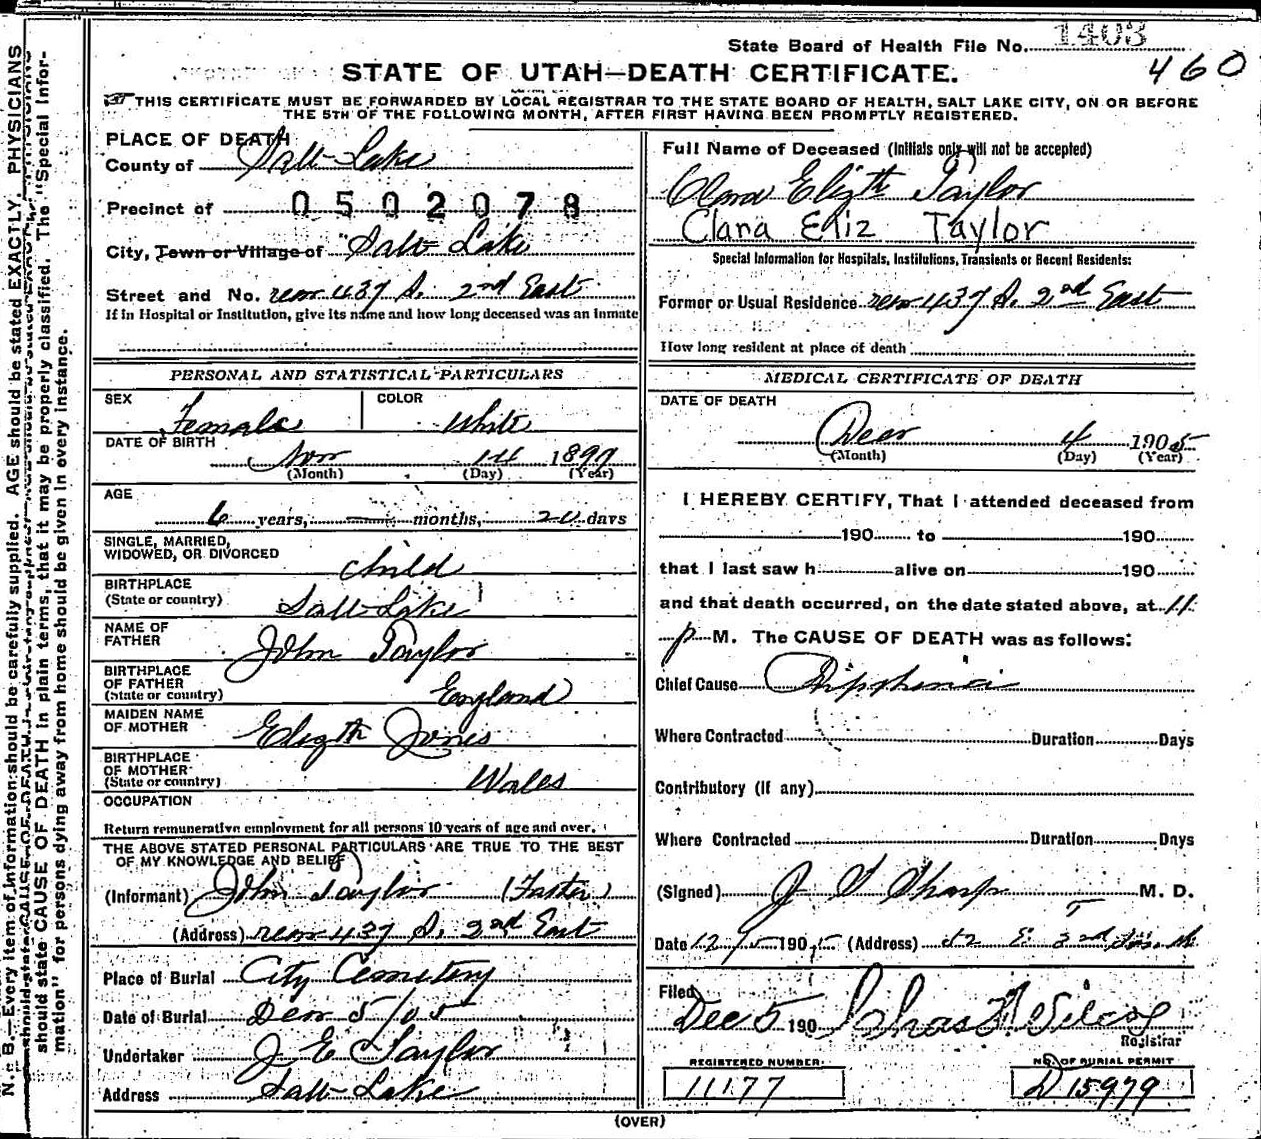 State Board of Health File No. 1403
460
STATE OF UTAH—DEATH CERTIFICATE.
THIS CERTIFICATE MUST BE FORWARDED BY LOCAL REGISTRAR TO THE STATE BOARD OF HEALTH, SALT LAKE CITY, ON OR BEFORE
THE 5TH OF THE FOLLOWING MONTH, AFTER FIRST HAVING BEEN PROMPTLY REGISTERED.
PLACE OF DEATH
County of Salt Lake
Precinct of 0502078
City, Town or Village of Salt Lake
Street and No. rear 437 S. 2nd East
If in Hospital or Institution, give its name and how long deceased was an inmate
Full Name of Deceased (Initials only will not be accepted)
Clara Elizth Taylor
Clara Eliz Taylor
Special Information for Hospitals, Institutions, Transients or Recent Residents:
Former or Usual Residence rear 437 S. 2nd East
How long resident at place of death
PERSONAL AND STATISTICAL PARTICULARS
SEX Female COLOR White
DATE OF BIRTH
Nov 14 1899
(Month) (Day) (Year)
AGE
6 years, — months, 20 days
SINGLE, MARRIED,
WIDOWED, OR DIVORCED child
BIRTHPLACE
(State or country) Salt Lake
NAME OF
FATHER John Taylor
BIRTHPLACE
OF FATHER
(State or country) England
MAIDEN NAME
OF MOTHER Elizth Jones
BIRTHPLACE
OF MOTHER
(State or country) Wales
OCCUPATION
Return remunerative employment for all persons 10 years of age and over.
THE ABOVE STATED PERSONAL PARTICULARS ARE TRUE TO THE BEST
OF MY KNOWLEDGE AND BELIEF
(Informant) John Taylor (Father)
(Address) rear 437 S. 2nd East
Place of Burial City Cemetery
Date of Burial Dec 5/05
Undertaker J E Taylor
Address Salt Lake
MEDICAL CERTIFICATE OF DEATH
DATE OF DEATH
Decr 4 1905
(Month) (Day) (Year)
I HEREBY CERTIFY, That I attended deceased from
190 to 190
that I last saw h alive on 190
and that death occurred, on the date stated above, at 11
p M. The CAUSE OF DEATH was as follows:
Chief Cause
Where Contracted Duration Days
Contributory (If any)
Where Contracted Duration Days
(Signed) J F Sharp M. D.
Date 12/5 1905 (Address) 52 E 3rd
Filed
Dec 5 190 Chas F. Wilcox
Registrar
REGISTERED NUMBER.
11177
NO. OF BURIAL PERMIT
D 15979
(OVER)
N. B.—Every item of information should be carefully supplied. AGE should be stated EXACTLY. PHYSICIANS
should state CAUSE OF DEATH in plain terms, that it may be properly classified. The "Special Infor-
mation" for persons dying away from home should be given in every instance.